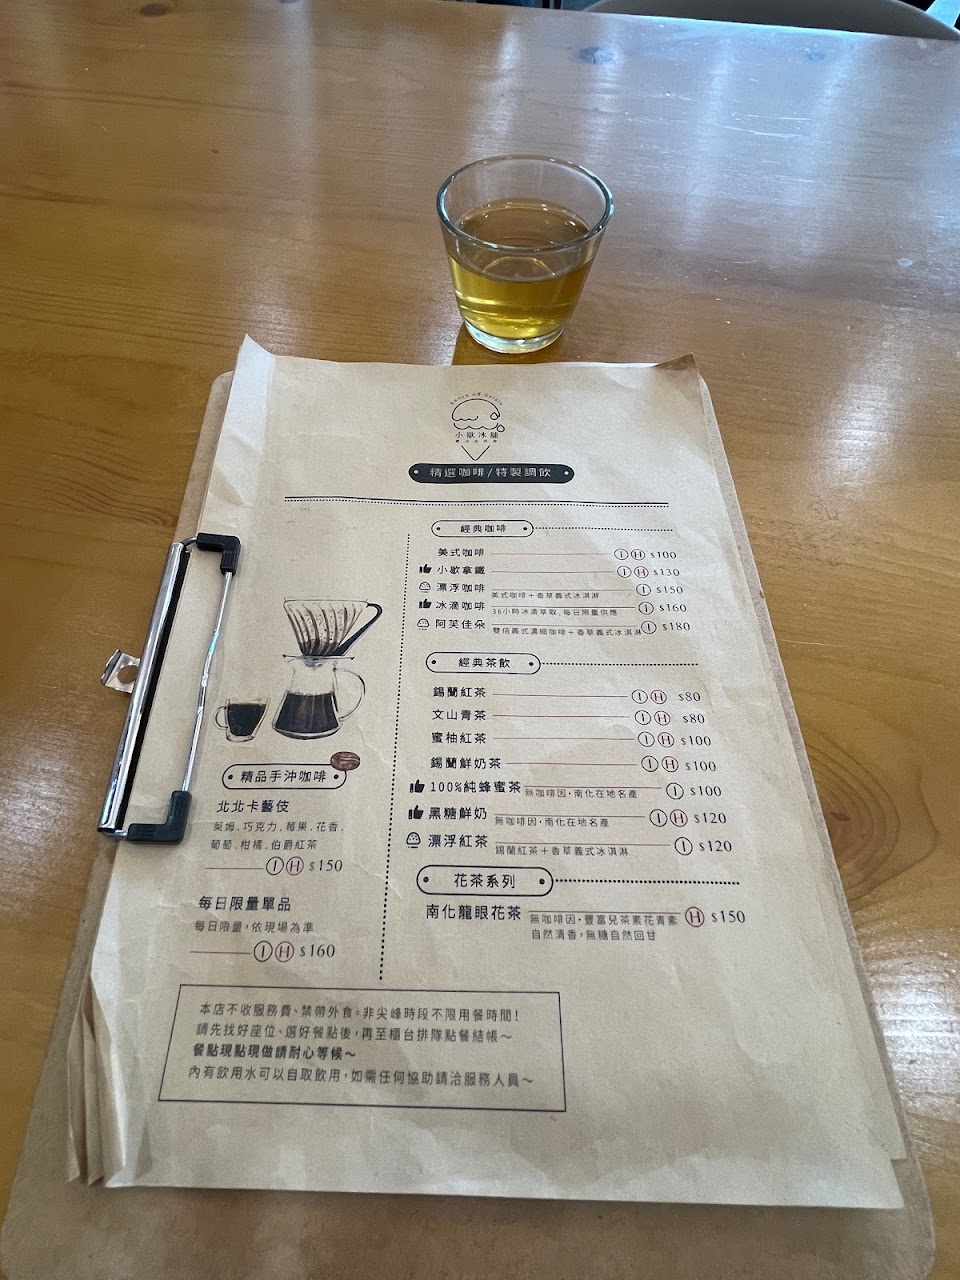 小歇冰舖
精選咖啡/特製調飲
經典咖啡
美式咖啡 I H $100
小歇拿鐵 I H $130
漂浮咖啡 美式咖啡+香草義式冰淇淋 I $150
冰滴咖啡 36小時冰滴萃取,每日限量供應 I $160
阿芙佳朵 雙倍義式濃縮咖啡+香草義式冰淇淋 I $180
經典茶飲
錫蘭紅茶 I H $80
文山青茶 I H $80
蜜柚紅茶 I H $100
錫蘭鮮奶茶 I H $100
100%純蜂蜜茶 無咖啡因·南化在地名產 I $100
黑糖鮮奶 無咖啡因·南化在地名產 I H $120
漂浮紅茶 錫蘭紅茶+香草義式冰淇淋 I $120
花茶系列
南化龍眼花茶 無咖啡因·豐富兒茶素花青素 H $150
自然清香,無糖自然回甘
精品手沖咖啡
北北卡藝伎
萊姆、巧克力、莓果、花香、
葡萄、柑橘、伯爵紅茶
I H $150
每日限量單品
每日限量,依現場為準
I H $160
本店不收服務費、禁帶外食。非尖峰時段不限用餐時間!
請先找好座位、選好餐點後,再至櫃台排隊點餐結帳~
餐點現點現做請耐心等候~
內有飲用水可以自取飲用,如需任何協助請洽服務人員~